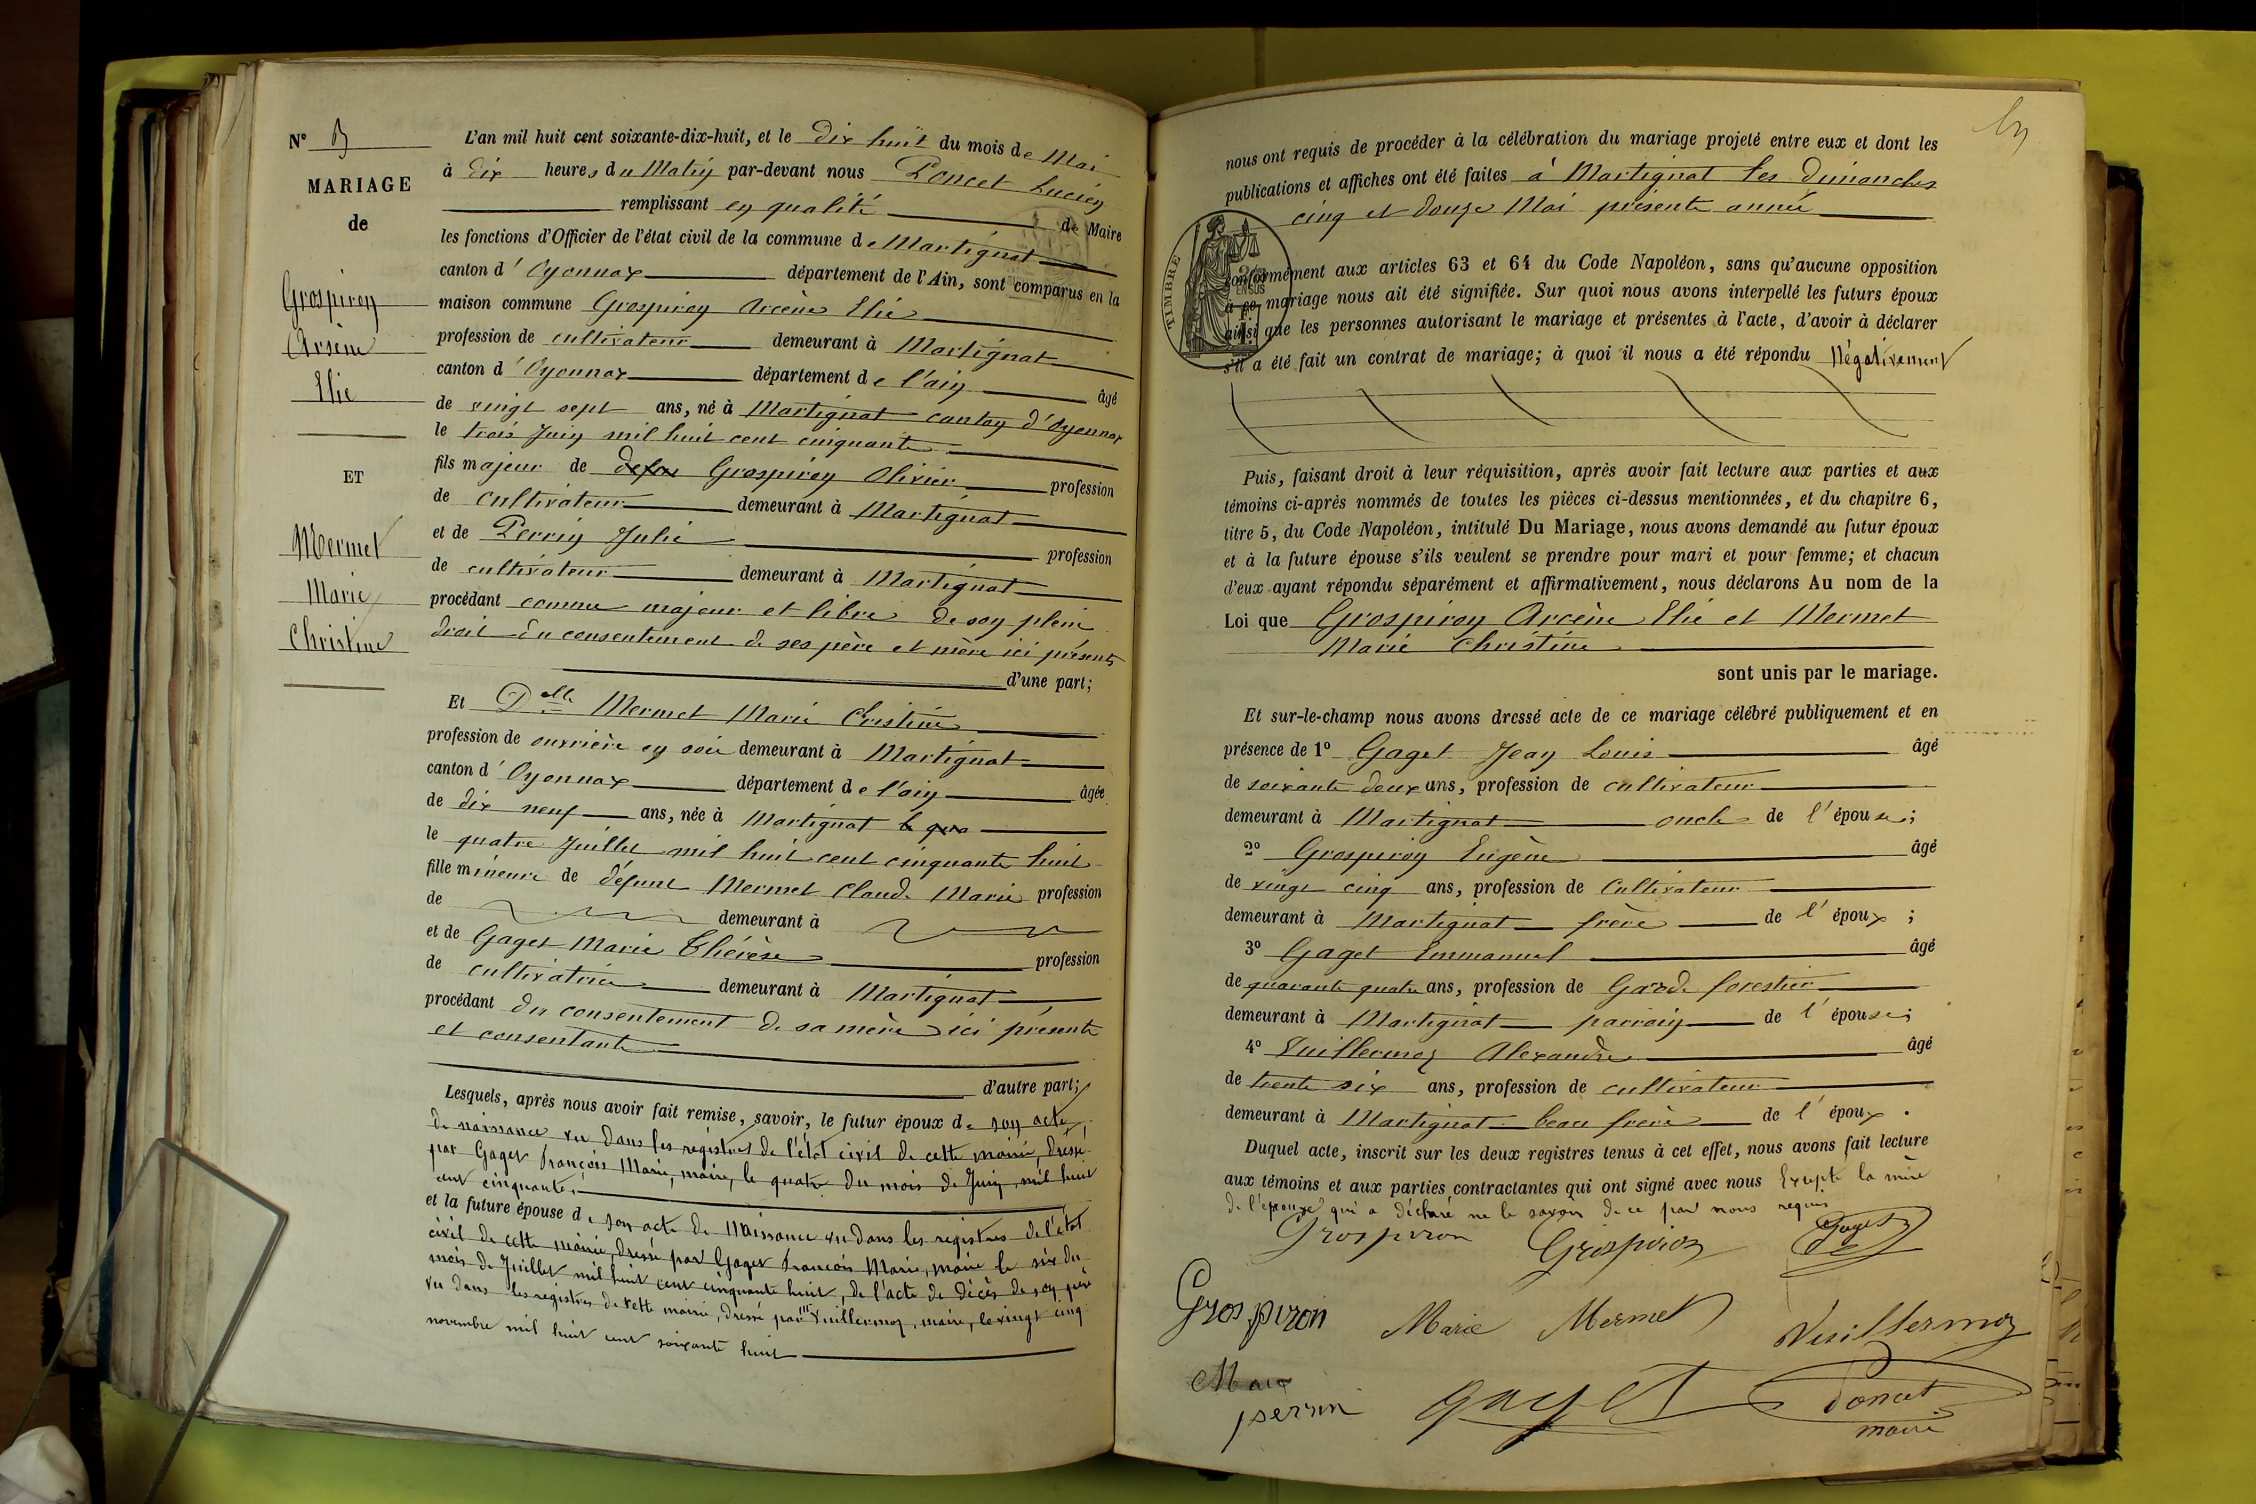 N° 3
MARIAGE
de
Grospiron
Arsène
Elie
ET
Mermet
Marie
Christine
L'an mil huit cent soixante-dix-huit, et le dix huit du mois de Mai
à dix heures du Matin par-devant nous Poncet Lucien
remplissant en qualité de Maire
les fonctions d'Officier de l'état civil de la commune de Martignat
canton d' Oyonnax département de l'Ain, sont comparus en la
maison commune Grospiron Arcène Elie
profession de cultivateur demeurant à Martignat
canton d' Oyonnax département de l'ain âgé
de vingt sept ans, né à Martignat canton d'Oyonnax
le trois Juin mil huit cent cinquante
fils majeur de Grospiron Olivier profession
de cultivateur demeurant à Martignat
et de Perrin Julie profession
de cultivateur demeurant à Martignat
procédant comme majeur et libre de son plein
droit du consentement de ses père et mère ici présents
d'une part;
Et Delle Mermet Marie Cristine
profession de ouvrière en soie demeurant à Martignat
canton d' Oyonnax département de l'ain âgée
de dix neuf ans, née à Martignat
le quatre Juillet mil huit cent cinquante huit
fille mineure de défunt Mermet Claude Marie profession
de demeurant à
et de Gaget Marie Thérèse profession
de cultivatrice demeurant à Martignat
procédant du consentement de sa mère ici présente
et consentante
d'autre part;
Lesquels, après nous avoir fait remise, savoir, le futur époux de son acte
de naissance vu dans les registres de l'état civil de cette mairie, dressé
par Gaget François Marie, maire, le quatre du mois de Juin mil huit
cent cinquante.
et la future épouse de son acte de Naissance vu dans les registres de l'état
civil de cette mairie, dressé par Gaget Francois Marie, maire le six du
mois de Juillet mil huit cent cinquante huit, de l'acte de décès de son père
vu dans les registres de cette mairie, dressé par Mr Vuillermoz, maire, le vingt cinq
novembre mil huit cent soixante huit
nous ont requis de procéder à la célébration du mariage projeté entre eux et dont les
publications et affiches ont été faites à Martignat les dimanches
cinq et douze Mai présente année
TIMBRE
conformément aux articles 63 et 64 du Code Napoléon, sans qu'aucune opposition
à ce mariage nous ait été signifiée. Sur quoi nous avons interpellé les futurs époux
ainsi que les personnes autorisant le mariage et présentes à l'acte, d'avoir à déclarer
s'il a été fait un contrat de mariage; à quoi il nous a été répondu Négativement
Puis, faisant droit à leur réquisition, après avoir fait lecture aux parties et aux
témoins ci-après nommés de toutes les pièces ci-dessus mentionnées, et du chapitre 6,
titre 5, du Code Napoléon, intitulé Du Mariage, nous avons demandé au futur époux
et à la future épouse s'ils veulent se prendre pour mari et pour femme; et chacun
d'eux ayant répondu séparément et affirmativement, nous déclarons Au nom de la
Loi que Grospiron Arcène Elie et Mermet
Marie Christine
sont unis par le mariage.
Et sur-le-champ nous avons dressé acte de ce mariage célébré publiquement et en
présence de 1° Gaget Jean Louis âgé
de soixante deux ans, profession de cultivateur
demeurant à Martignat oncle de l'épouse;
2° Grospiron Eugène âgé
de vingt cinq ans, profession de Cultivateur
demeurant à Martignat frère de l'époux;
3° Gaget Emmanuel âgé
de quarante quatre ans, profession de Garde forestier
demeurant à Martignat parrain de l'épouse;
4° Vuillermoz Alexandre âgé
de trente six ans, profession de cultivateur
demeurant à Martignat beau frère de l'époux.
Duquel acte, inscrit sur les deux registres tenus à cet effet, nous avons fait lecture
aux témoins et aux parties contractantes qui ont signé avec nous Excepté la mère
de l'épouse qui a déclaré ne le savoir de ce par nous requis
Grospiron Grospiron Gaget
Grospiron Marie Mermet Vuillermoz
perrin Gaget Poncet
maire